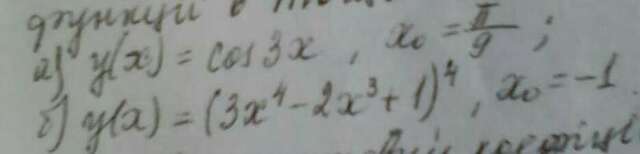 функції в
а) y(x) = cos 3x , x₀ = π/9 ;
б) y(x) = (3x⁴ - 2x³ + 1)⁴ , x₀ = -1